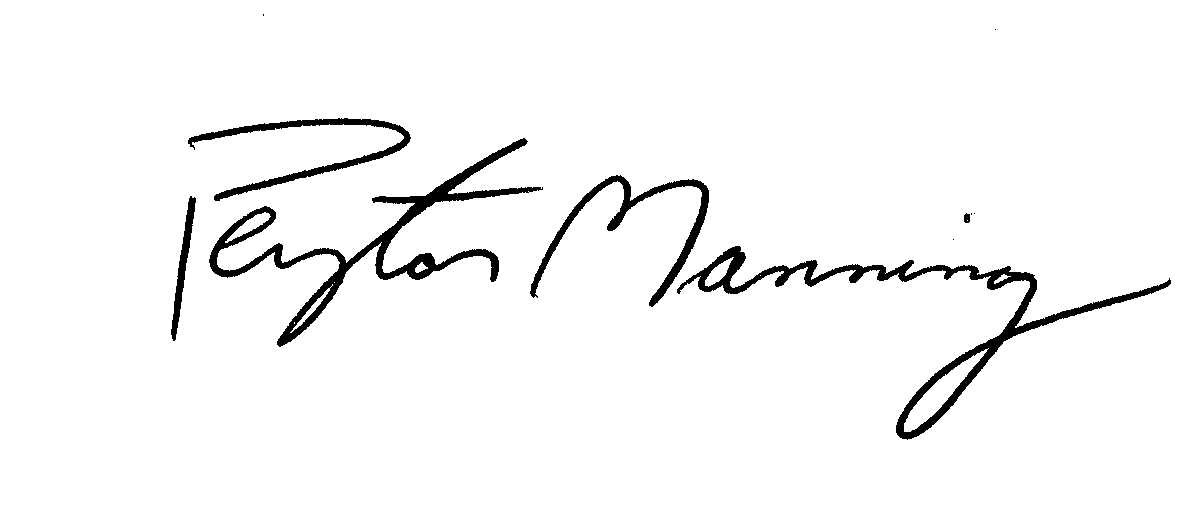 Peyton Manning